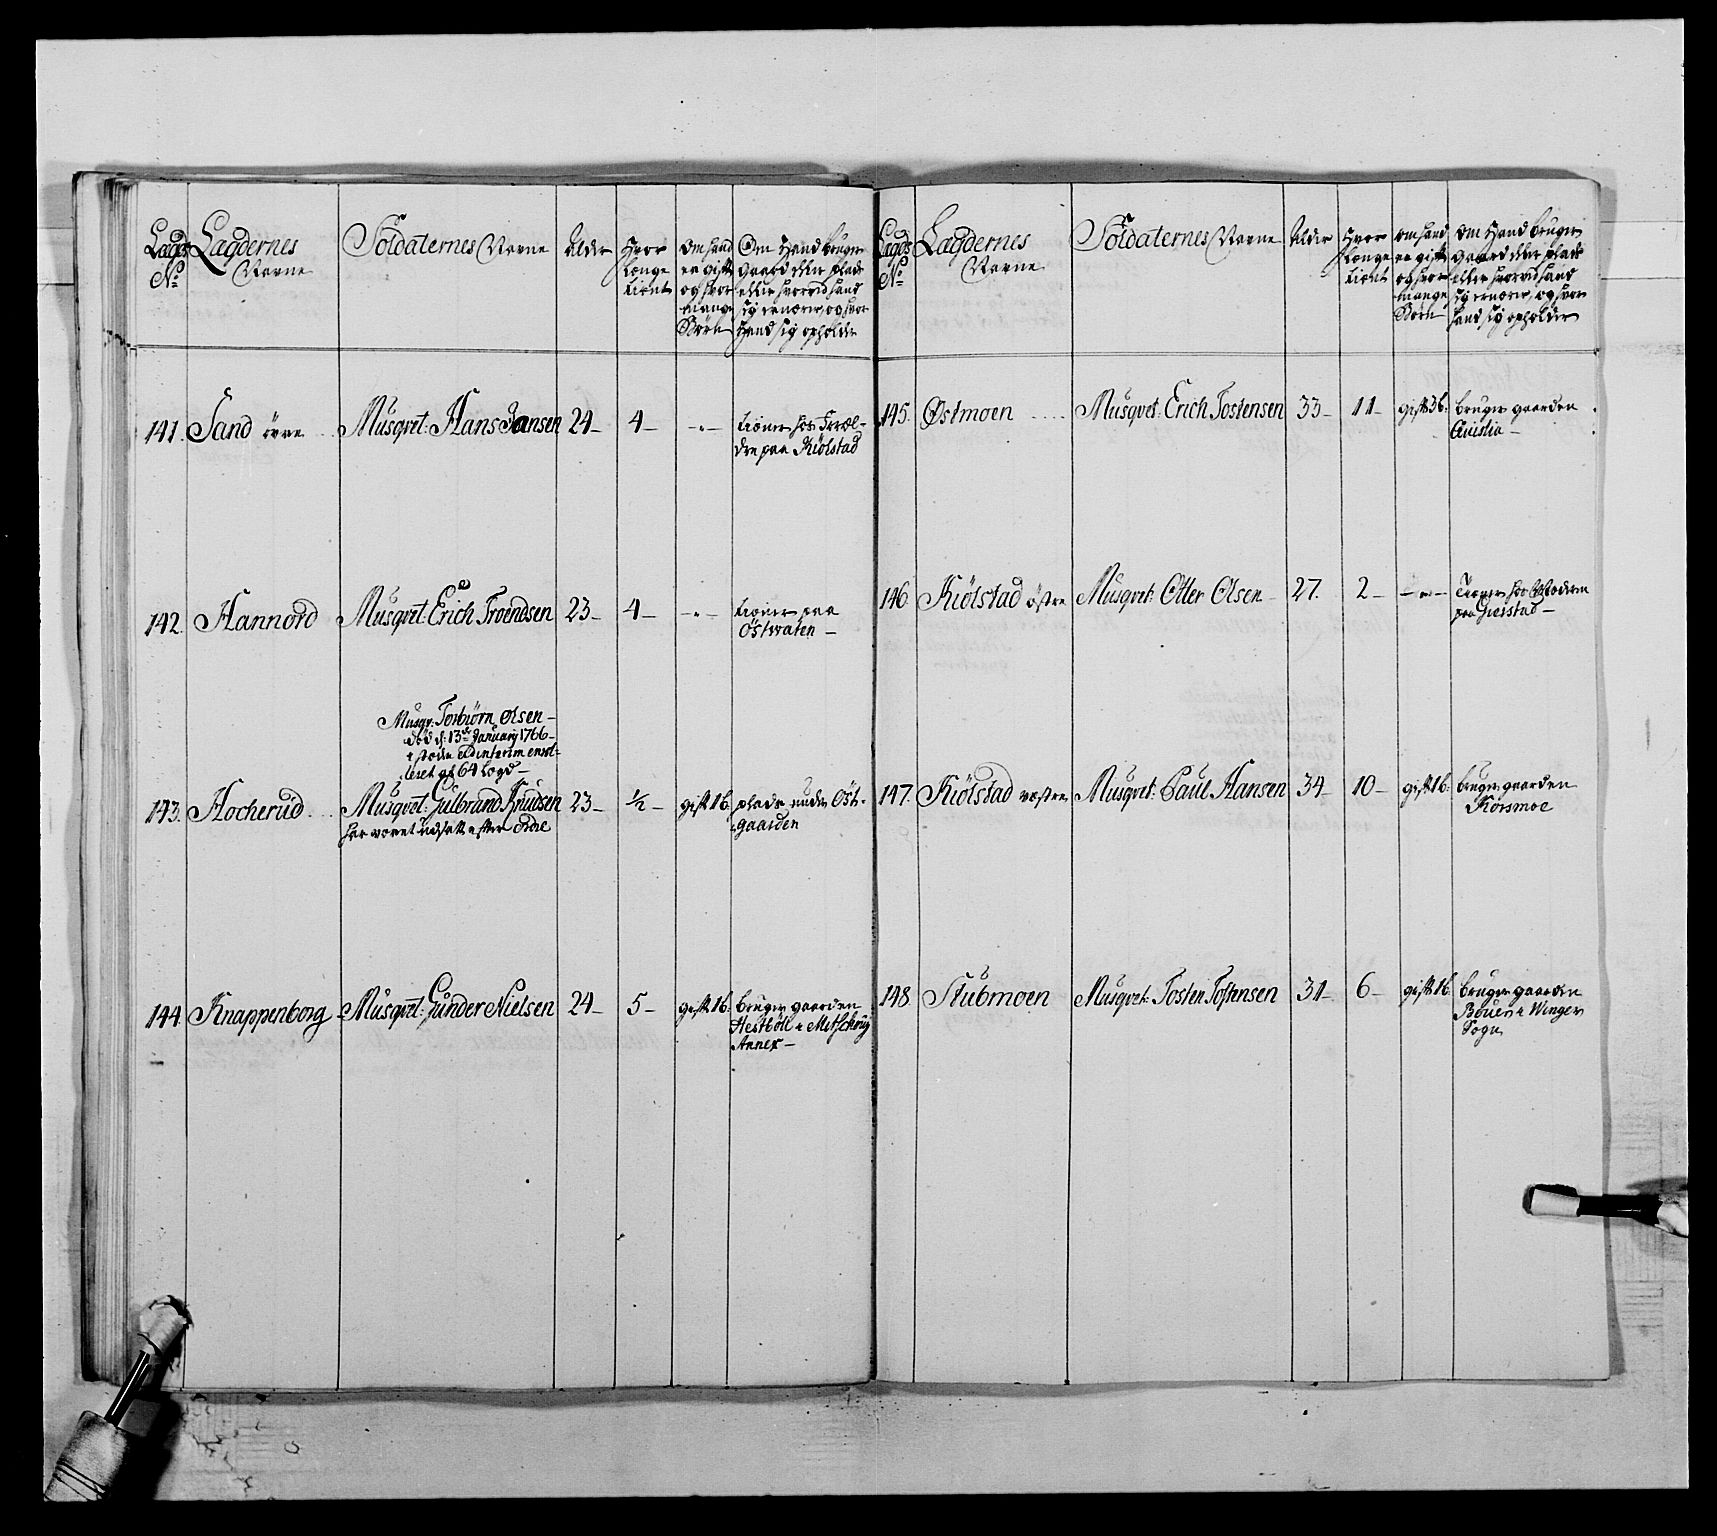 Lægds Lægdernes Soldaternes Navne Alder Hvor Om hand Om Hand bruger
No Navne længe er gift Gaard eller plads
tient og hvor eller hvorved hand
mange sig ernærer, og hvor
Børn Hand sig opholder
141. Sand övre Musqvet: Hans Jansen 24 4 - " - tiener hos Foræl-
dre paa Kiölstad
142. Hannord Musqvet: Erich Troendsen 23 4 - " - tiener paa
Östwaten
Musqv: Torbiörn Olsen
död d: 13de January 1766
i stæden ad interim enrol-
leret af 64 Lægd
143. Hocherud Musqvet: Gulbrand Knudsen 23 ½ gift 1 b. plads under Öst-
har været udsatt efter Ordre gaarden
144 Knappenborg Musqvet: Gunder Nielsen 24 5 gift 1 b. bruger gaarden
Hestböll i
Annex
Lægds Lægdernes Soldaternes Navne Alder Hvor om hand om Hand bruger
No Navne længe er gift gaard eller plads
tient og hvor eller hvorved hand
mange sig ernærer, og hvor
Börn hand sig opholder
145. Østmoen Musqvet: Erich Tostensen 33 11 gift 3 b. bruger gaarden
146 Kiölstad östre Musqvet: Otter Olsen 27. 2 - " - Tiener hos Moderen
paa Gierstad
147. Kiölstad væstre Musqvet: Paul Hansen 34 10 gift 1 b. bruger gaarden
Korsmoe
148 Stubmoen Musqvet: Tosten Tostensen 31 6 gift 1 b. bruger gaarden
i Winger
Sogn